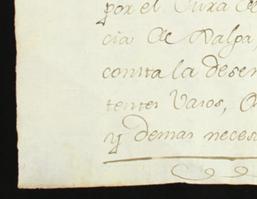 por el Cura de
cia de Nalda,
contra la desen
tentes Varos,
y demas neces